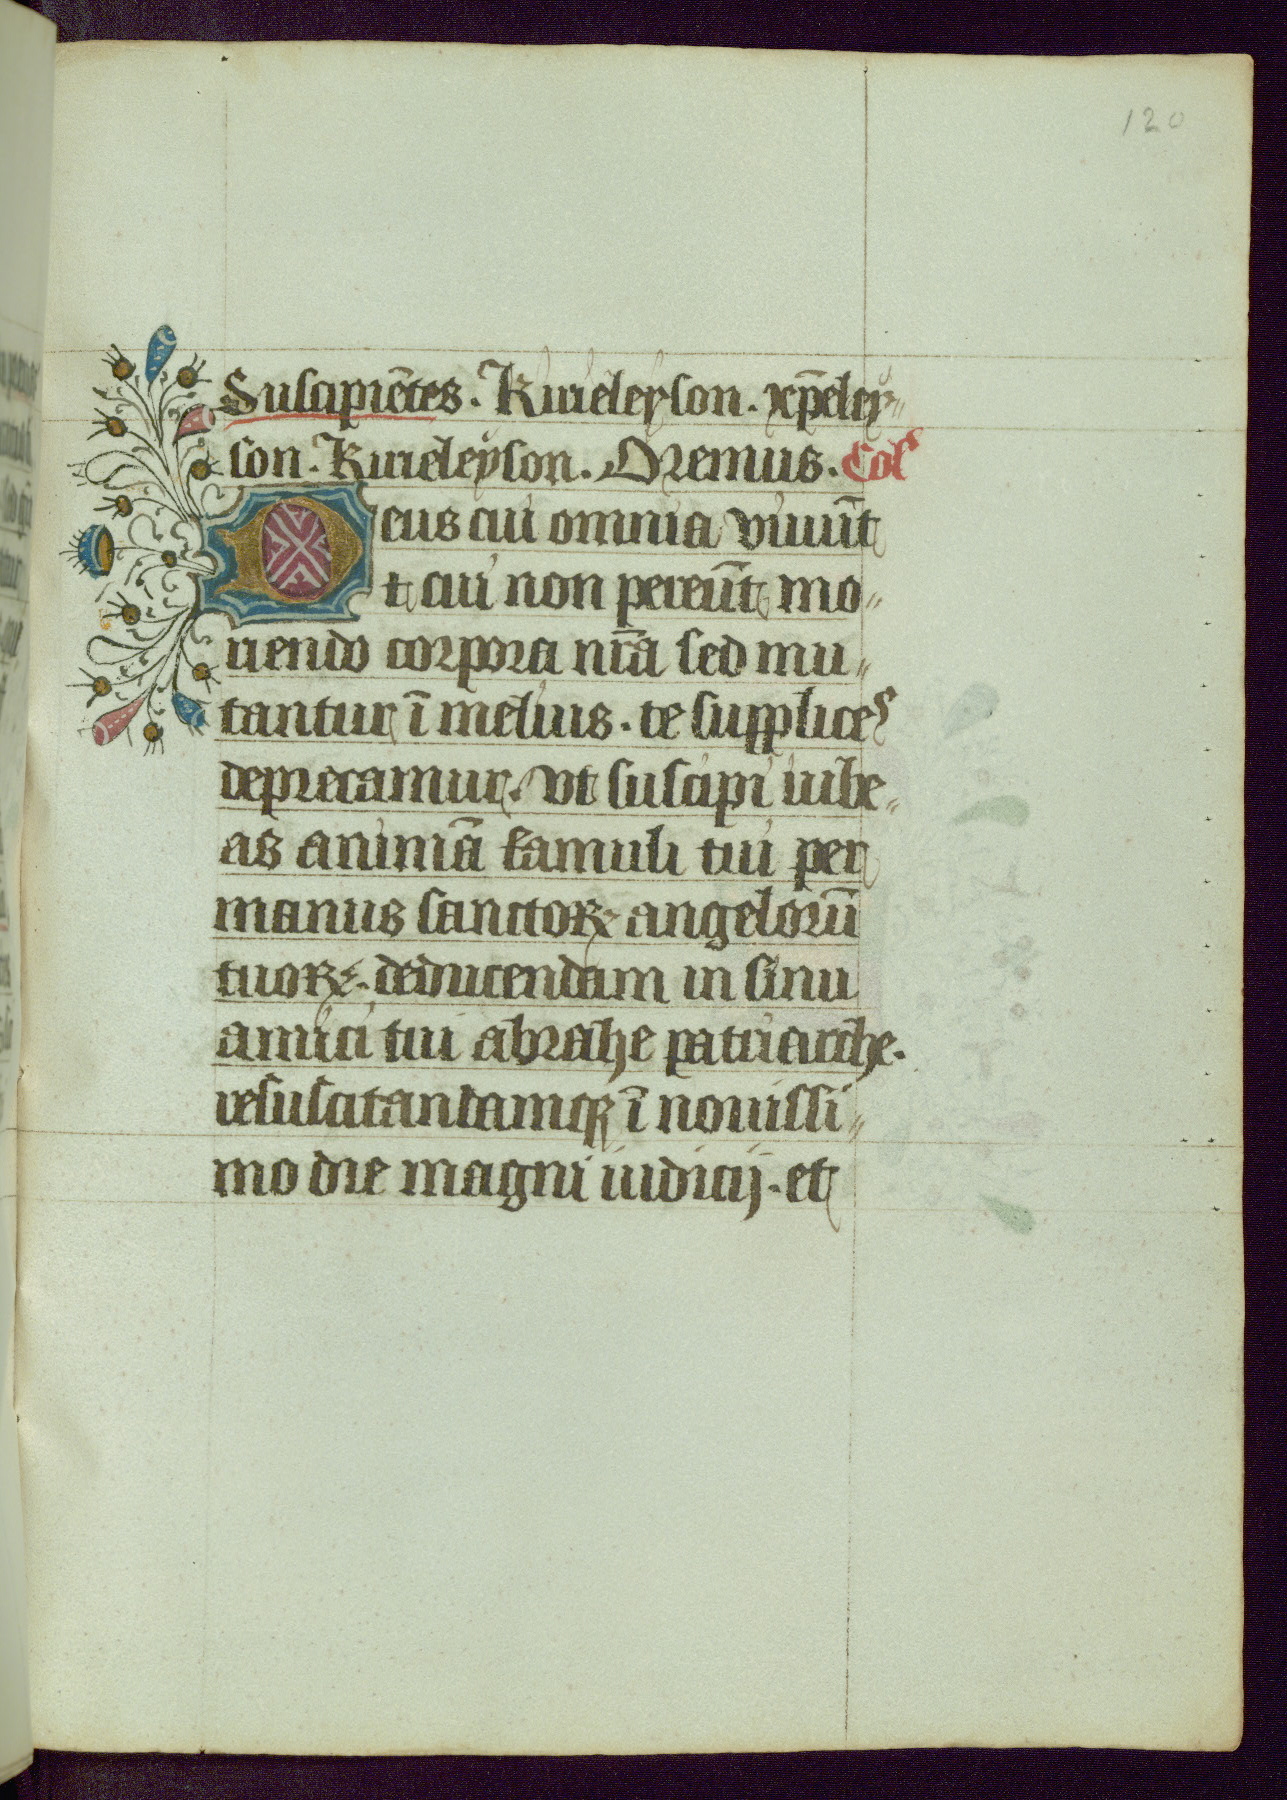 120
Suscipiētes. Kirieleyson. xp̄eley-
son. Kirieleyson. Oremus. Col'
Deus cui omnia viuūt
et cui non pereūt mo-
riendo corpora nr̄a sed mu-
tantur ī melius. te supplices
deprecamur. vt suscipi iube-
as animā famuli tui per
manus sanctoꝝ angelorū
tuoꝝ. deducendam in sinu
amici tui abrahe patriarche.
resuscitandamqꝫ ī nouissi-
mo die magni iudicij. et